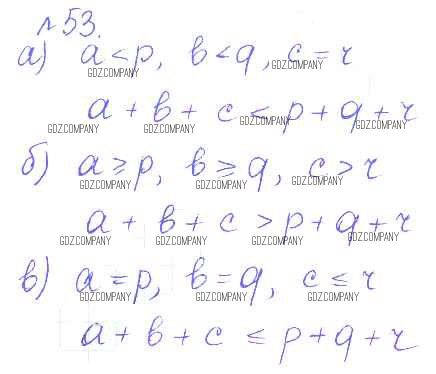 №53.
а) a < p, b < q, c = r
GDZ.COMPANY GDZ.COMPANY GDZ.COMPANY
a + b + c ≤ p + q + r
GDZ.COMPANY GDZ.COMPANY GDZ.COMPANY GDZ.COMPANY
б) a ≥ p, b ≥ q, c > r
GDZ.COMPANY GDZ.COMPANY GDZ.COMPANY
a + b + c > p + q + r
GDZ.COMPANY GDZ.COMPANY GDZ.COMPANY GDZ.COMPANY
в) a = p, b = q, c ≤ r
GDZ.COMPANY GDZ.COMPANY GDZ.COMPANY
a + b + c ≤ p + q + r